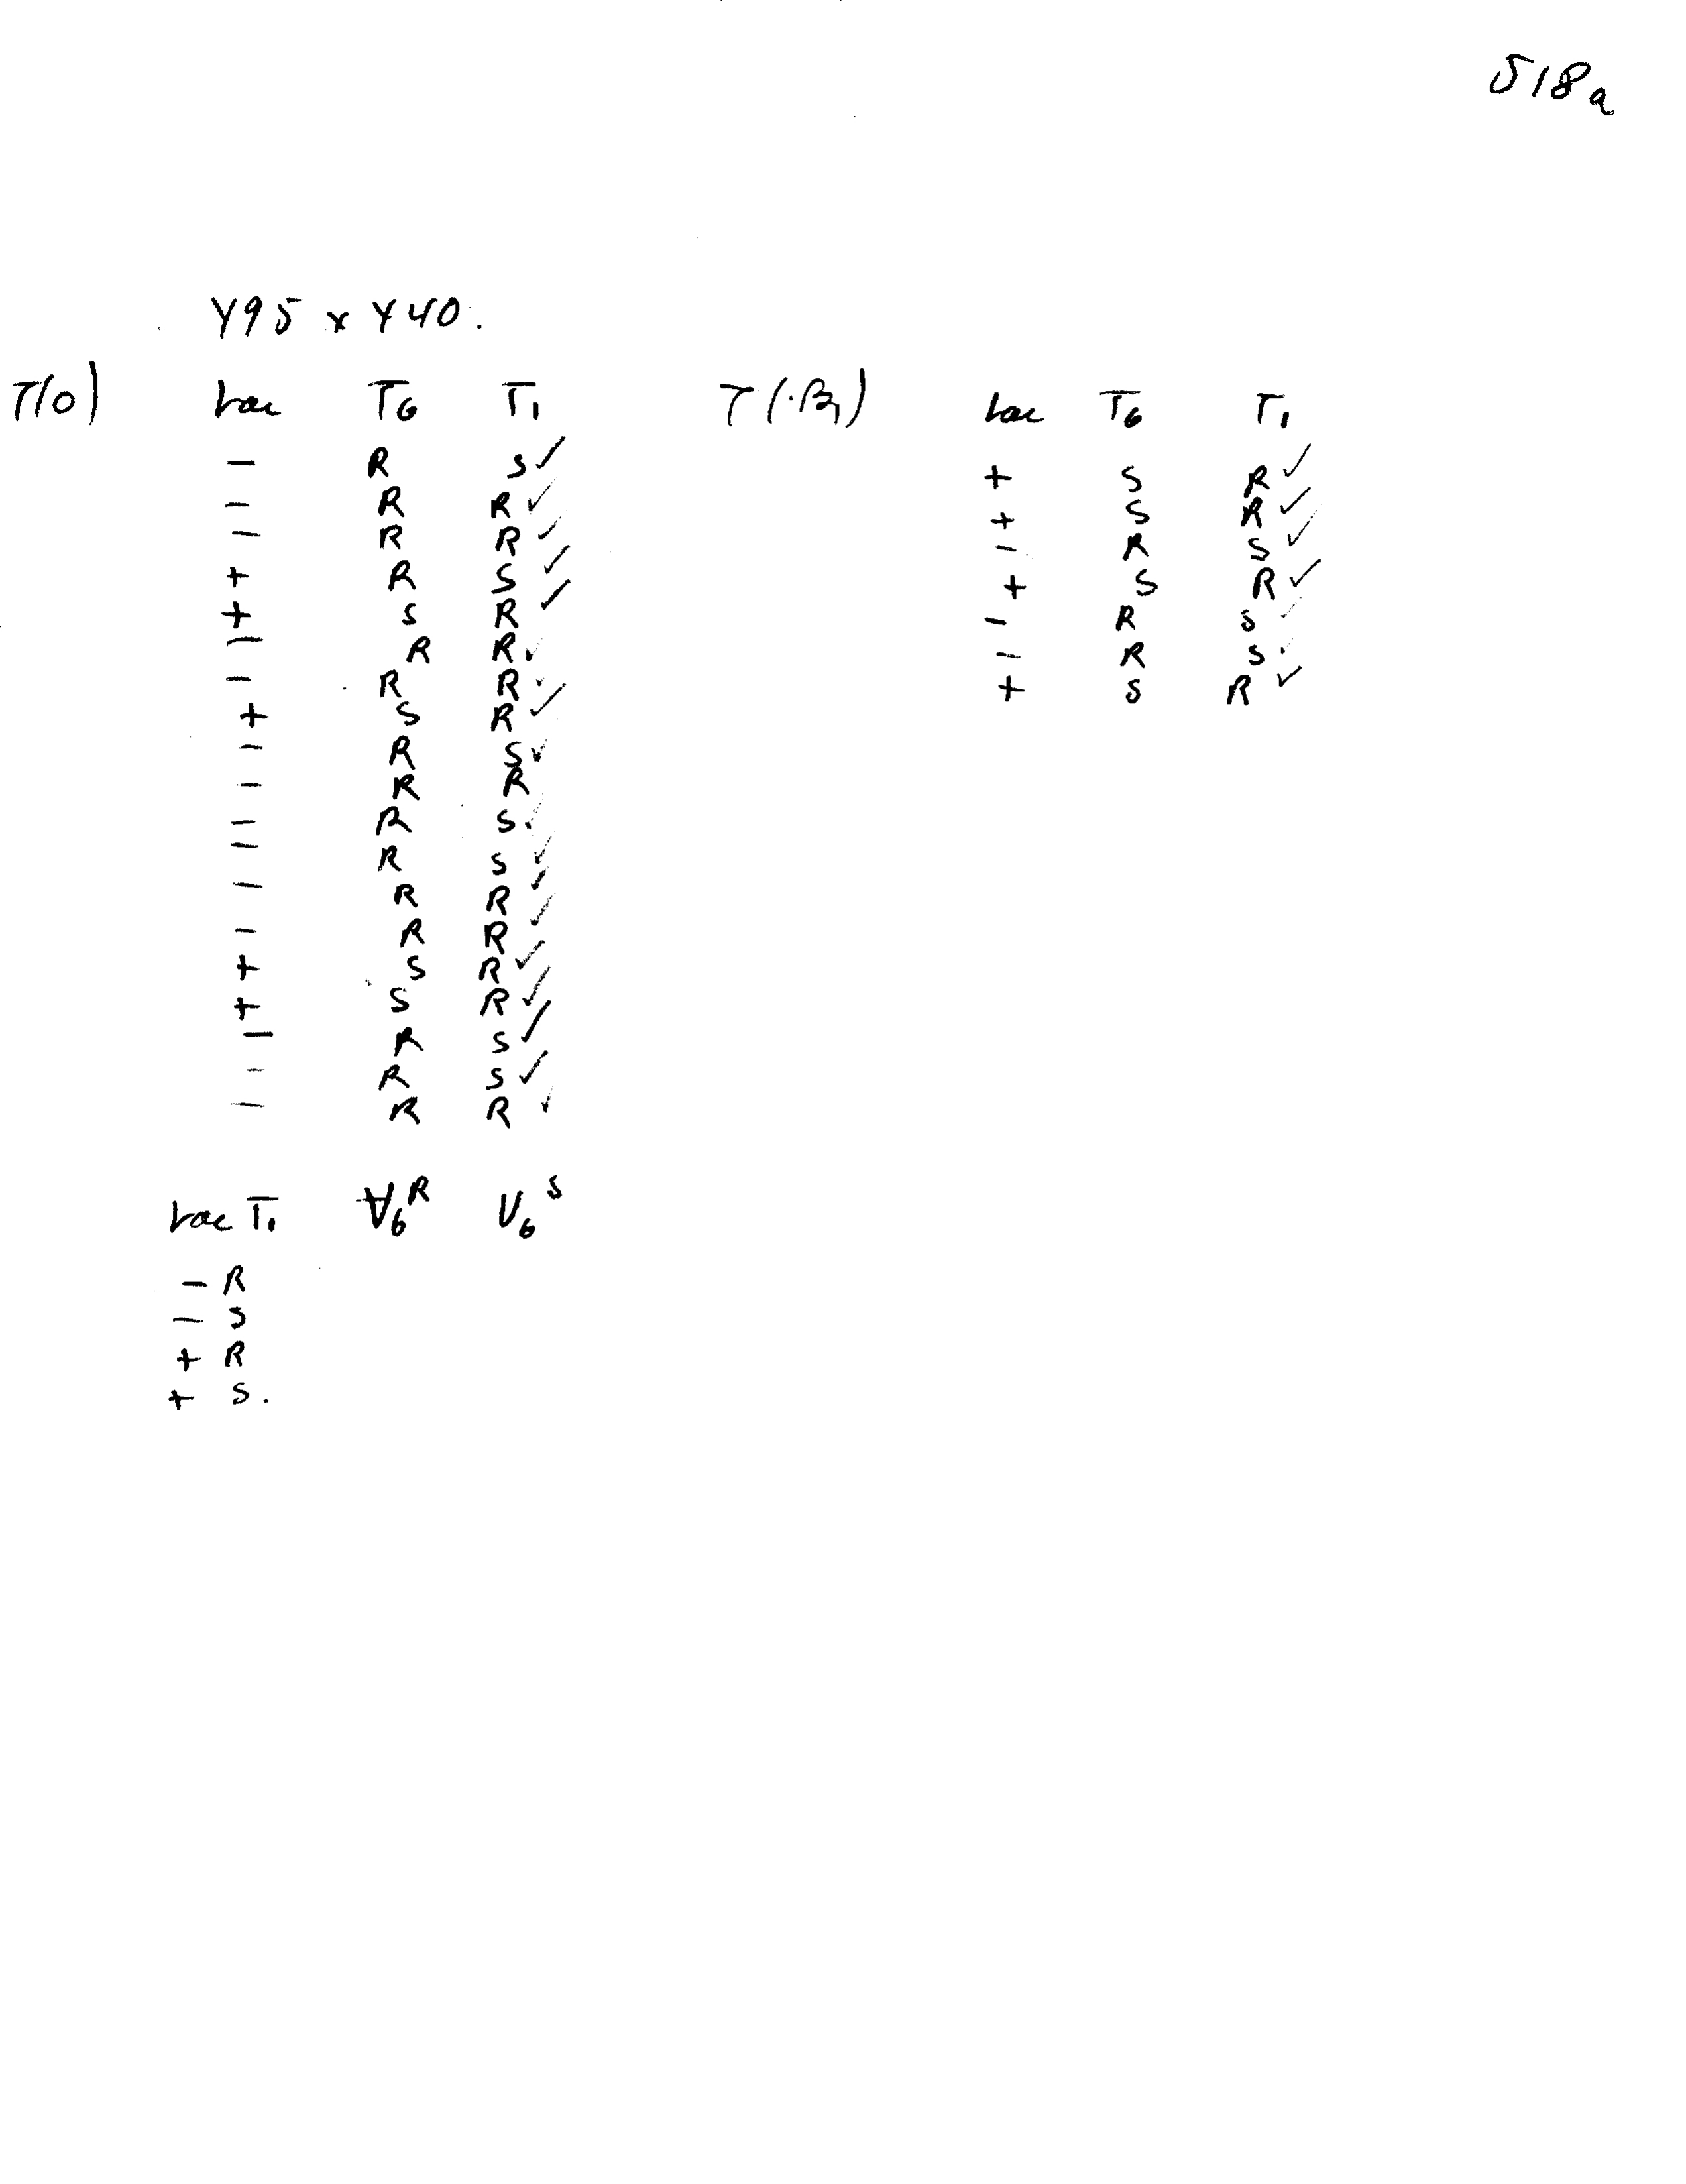 518a
Y95 x Y40.
T(0) Lac T6 T1
- R S ✓
- R R ✓
- R R ✓
+ R S ✓
+ S R ✓
- R R ✓
- R R ✓
+ S R ✓
- R S ✓
- R R
- R S ✓
- R S ✓
- R R ✓
- R R ✓
+ S R ✓
+ S R ✓
- R S ✓
- R S ✓
- R R ✓
T(·B1) Lac T6 T1
+ S R ✓
+ S R ✓
- R S ✓
+ S R ✓
- R S ✓
- R S ✓
+ S R ✓
Lac T1 V6^R V6^S
- R
- S
+ R
+ S.